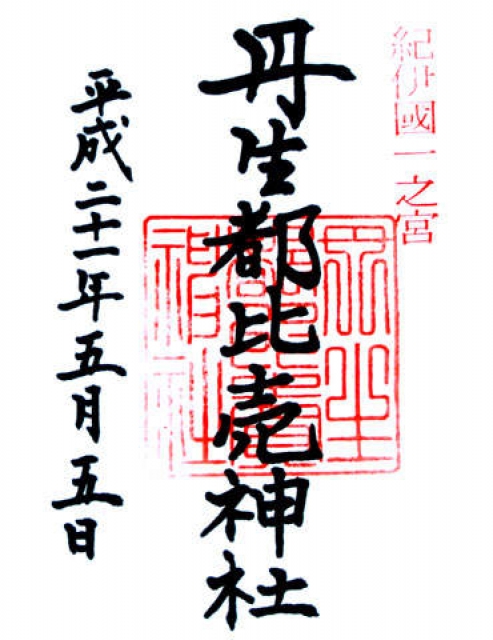 紀伊國一之宮
丹生都比売神社
丹生都比賣神社
平成二十一年五月五日